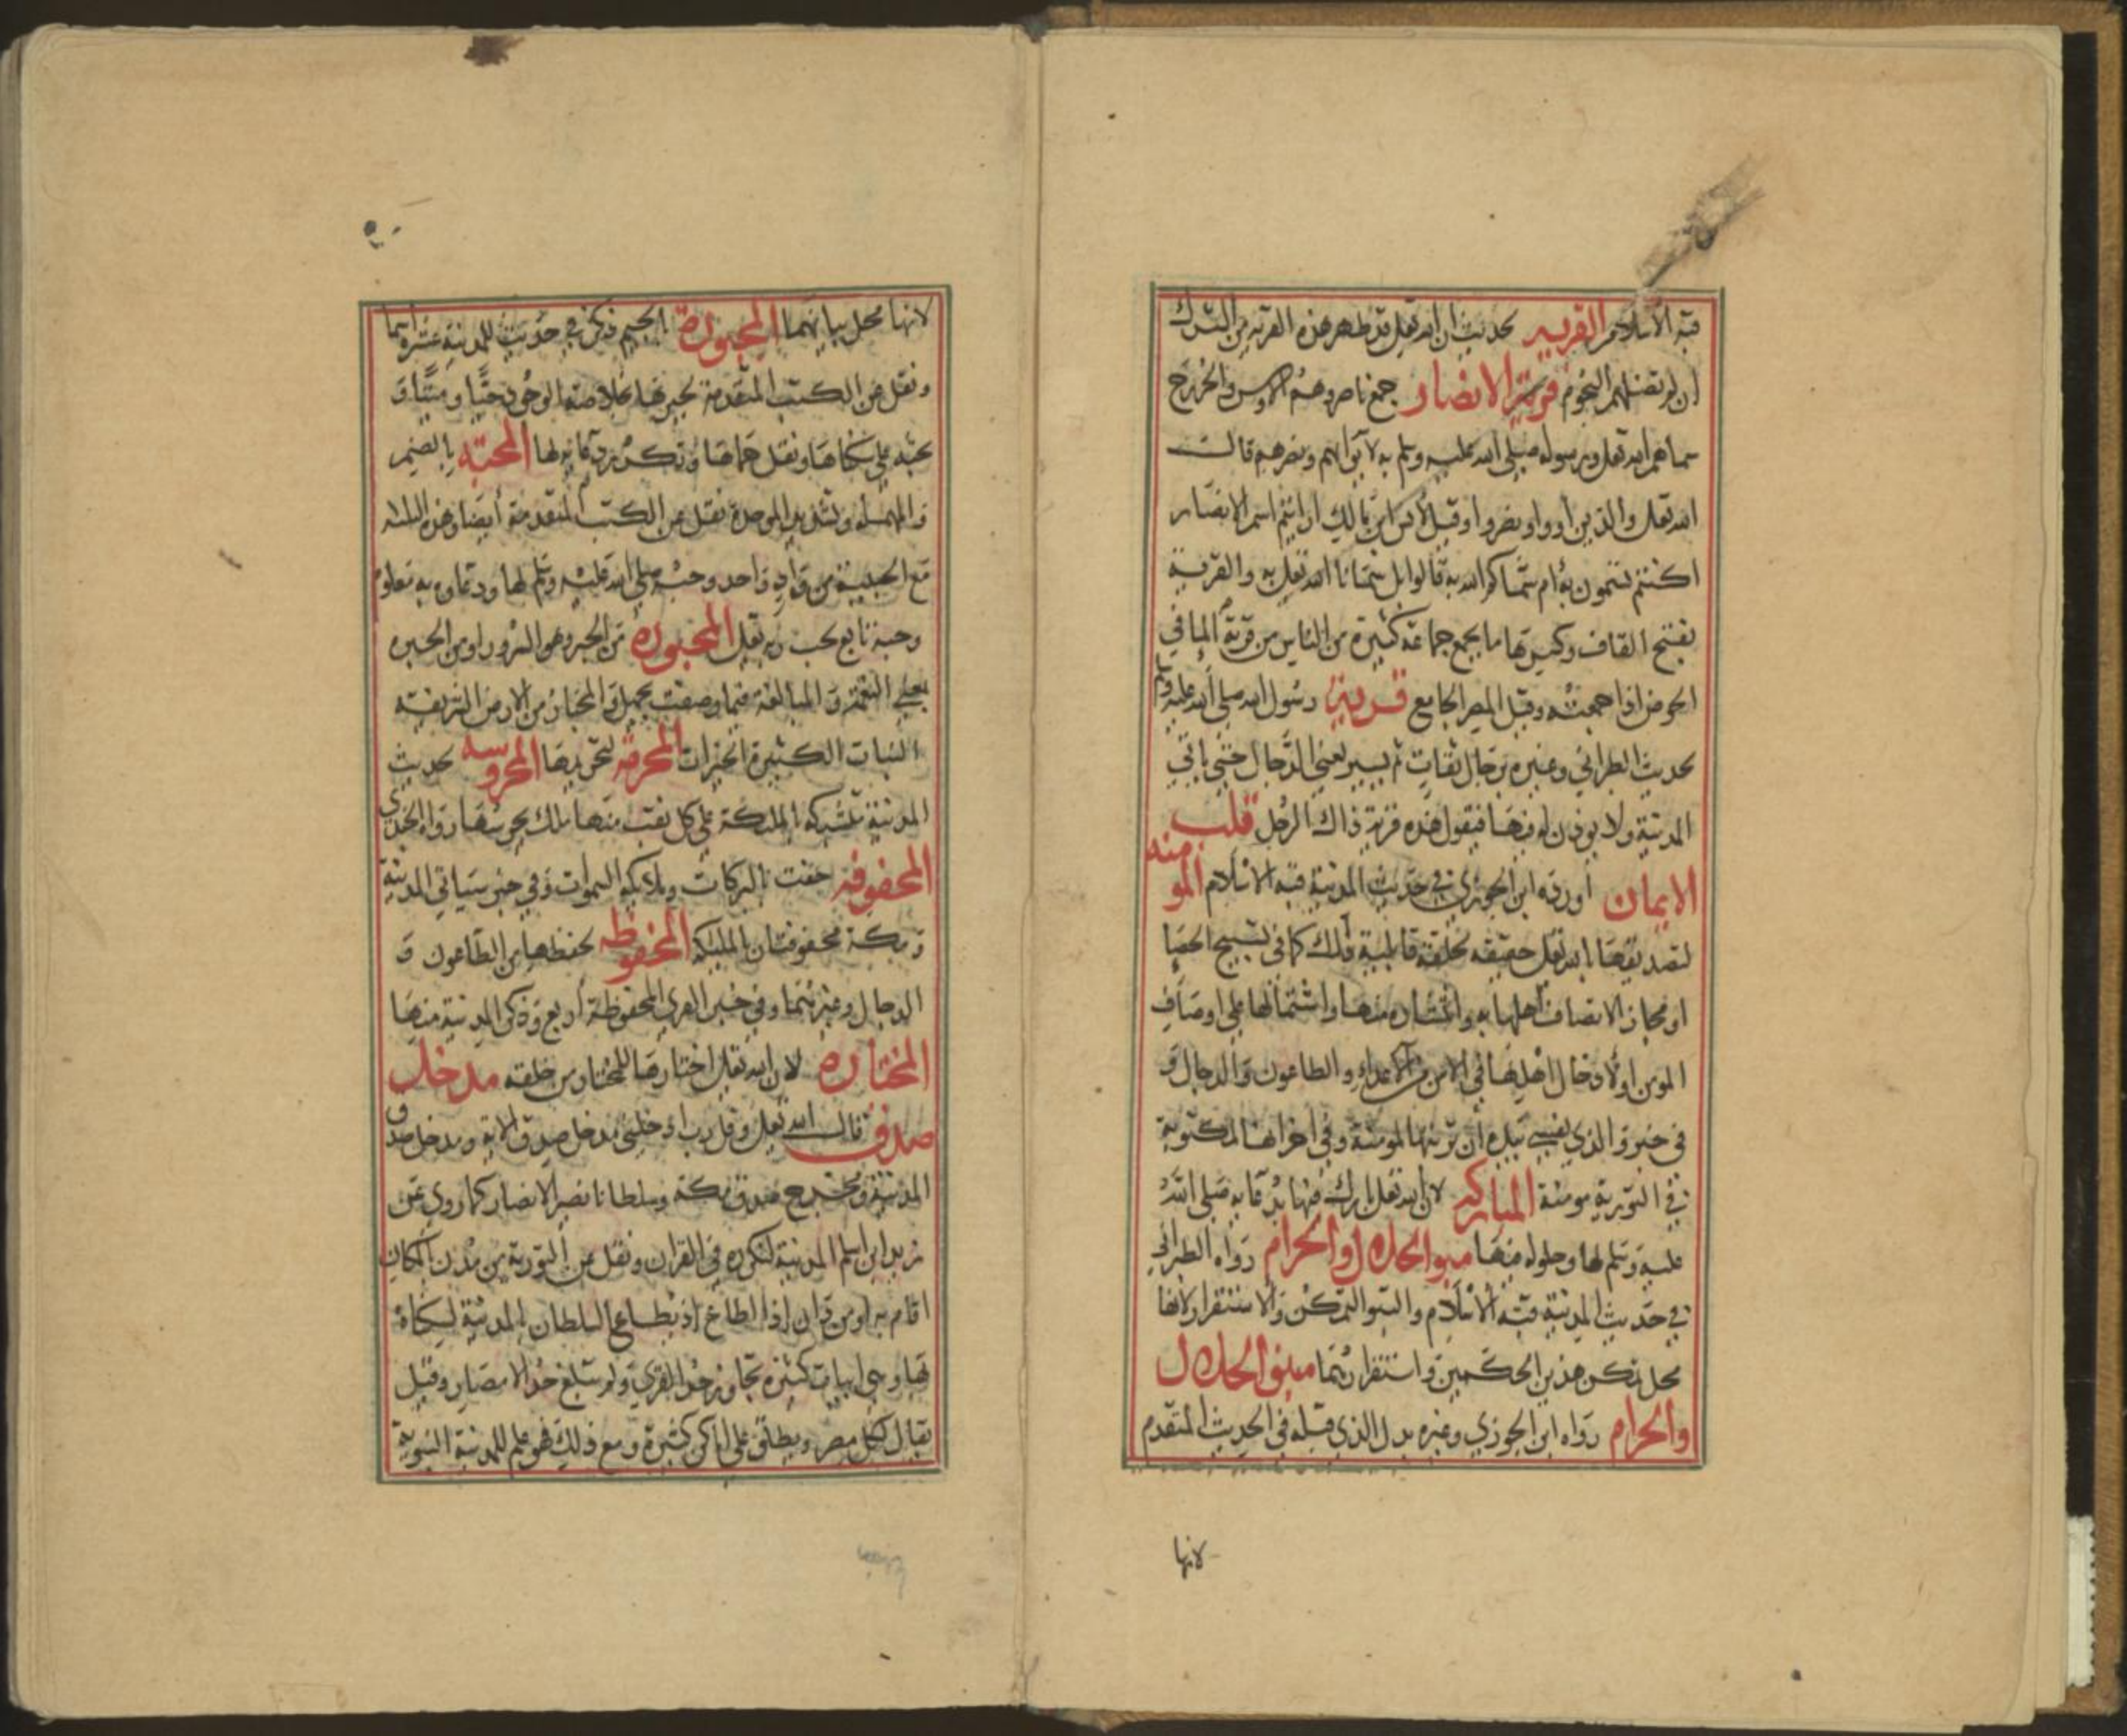 قبة الاسلام القرية لحديث ان الله تعلى قد طهر هذه القرية من الشرك
ان لم تضلهم النجوم قرية الانصار جمع ناصر وهم الاوس والخزرج
سماهم الله تعلى ورسوله صلى الله عليه وسلم به لايوائهم ونصرهم قالت
الله تعلى والذين اووا ونصروا وقيل لانس ابن مالك ارايتم اسم الانصار
اكنتم تسمون به ام سماكم الله به قالوا بل سمانا الله تعلى به والقرية
بفتح القاف وكسرها ما يجمع جماعة كثيرة من الناس من قرية الما في
الحوض اذا جمعته وقيل المصر الجامع قرية رسول الله صلى الله عليه وسلم
لحديث الطبراني وغيره برجال ثقات ثم يسير يعني الدجال حتى ياتي
المدينة ولا يوذن له فيها فيقول هذه قرية ذاك الرجل قلب
الايمان اورده ابن الجوزي في حديث المدينة قبة الاسلام المومنة
لتصديقها الله تعلى حقيقة لخلقه قابلية ذلك كما في تسبيح الحصا
او مجاز الاتصاف اهلها به وانتشاره منها واشتمالها على اوصاف
المومن اولادخال اهلها في الامن من الاعداء والطاعون والدجال و
في خبر والذي نفسي بيده ان تربتها لمومنة وفي اخر انها لمكتوبة
في التورية مومنة المباركة لان الله تعلى بارك فيها بدعايه صلى الله
عليه وسلم لها وحلوله فيها مبوا الحلال والحرام رواه الطبراني
في حديث المدينة قبة الاسلام والتبو التمكن والاستقرار لانها
محل تمكن هذين الحكمين واستقرارهما مبين الحلال
والحرام رواه ابن الجوزي وغيره بدل الذي قبله في الحديث المتقدم
لانها
لانها محل بيانهما المجبورة بالجيم ذكر في حديث للمدينة عشرة اسما
ونقل عن الكتب المتقدمة لجبرها بخلاصة الوجود حيا وميتا و
بحثه على سكناها ونقل حماها وتكرر دعايه لها المحبة بالضم
والمهملة وتشديد الموحدة نقل عن الكتب المتقدمة ايضا وهذه الثلثة
مع الحبيبة من واد واحد وحبه صلى الله عليه وسلم لها ودعاوه به معلوم
وحبه تابع لحب ربه تعلى المحبورة من الحبر وهو السرور او من الحبرة
بمعنى النعمة والمبالغة فيما وصفت بجميل والمحبار من الارض السريعة
النبات الكثيرة الخيرات المحرمة لتحريمها المحروسة لحديث
المدينة مشتبكة بالملئكة على كل نقب منها ملك يحرسها رواه الجندي
المحفوفة حفت بالبركات وملايكة السموات وفي خبر سياتي المدينة
ومكة محفوفتان بالملئكة المحفوظة لحفظها من الطاعون و
الدجال وغيرهما وفي خبر القرى المحفوظة اربع وذكر المدينة منها
المختارة لان الله تعلى اختارها للمختار من خلقه مدخل
صدق قالت الله تعلى وقل رب ادخلني مدخل صدق الاية ومدخل صدق
المدينة ومخرج صدق مكة وسلطانا نصيرا الانصار كما روى عن
زيد ابن اسلم المدينة لتكرره في القران ونقل عن التورية من مدن بالمكان
اقام به او من دان اذا اطاع اذ يطاع السلطان بالمدينة لسكناه
بها وهي ابيات كثيرة تجاوز حد القرى ولم تبلغ حد الامصار وقيل
يقال لكل مصر ويطلق على اماكن كثيرة ومع ذلك فهو علم للمدينة النبوية